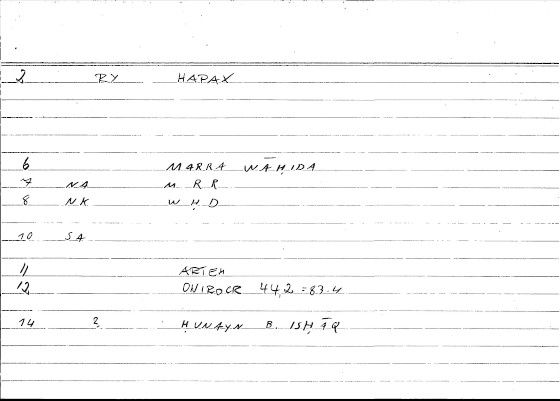 2 RY HAPAX
6 MARRA WĀḤIDA
7 NA M R R
8 NK W Ḥ D
10 SA
11 ARTEM
12 ONIROCR 44,2 = 83.4
14 2 ḤUNAYN B. ISḤĀQ